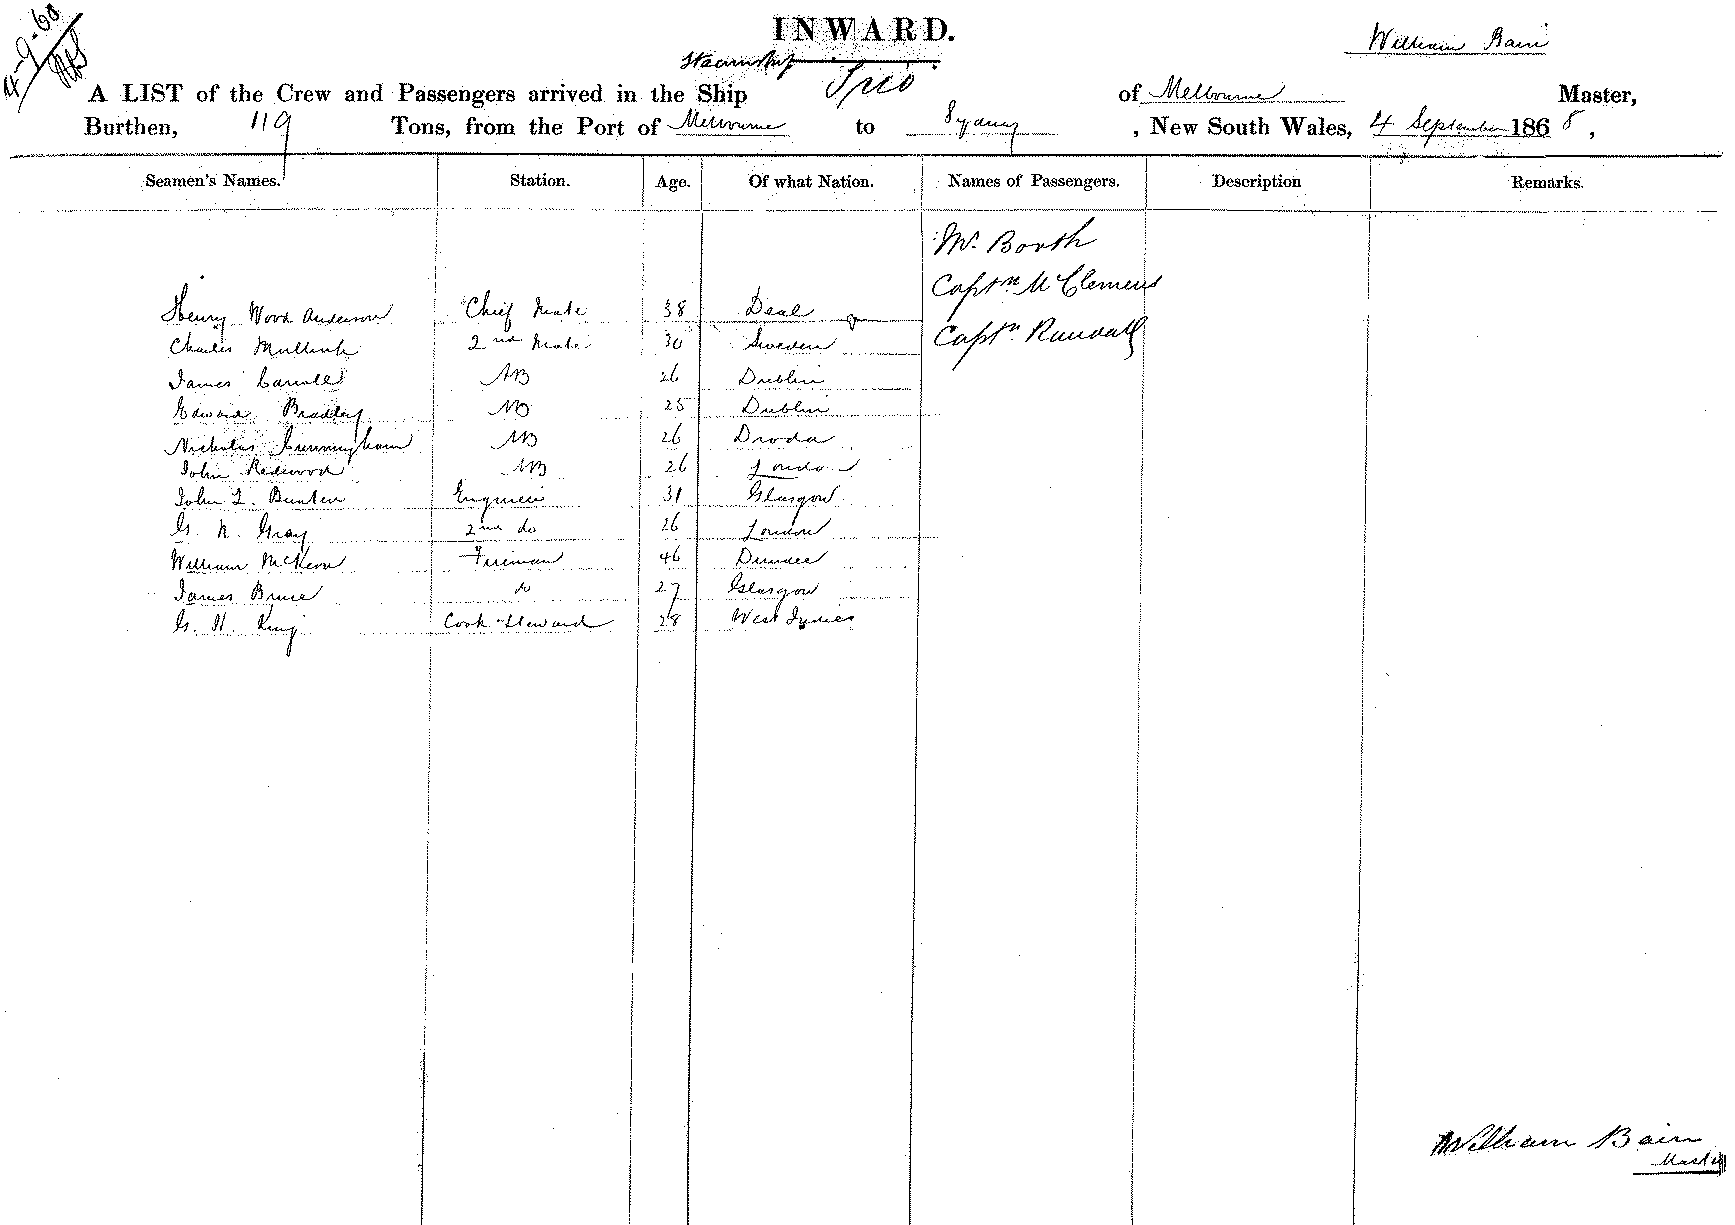 4-9-60
INWARD.
William Bain
Steamship
A LIST of the Crew and Passengers arrived in the Ship of Melbourne Master,
Burthen, 119 Tons, from the Port of Melbourne to Sydney, New South Wales, 4 September 1868,
Seamen's Names. Station. Age. Of what Nation. Names of Passengers. Description Remarks.
Mr. Booth
Captn McClemens
Henry Wood Anderson Chief Mate 38 Deal
Captn. Randall
Charles 2nd Mate 30 Sweden
James Carroll AB 26 Dublin
Edward Bradley AB 25 Dublin
Nicholas Cunningham AB 26 Droda
John Redwood AB 26 London
John Bunten Engineer 31 Glasgow
G. N. Gray 2nd do 26 London
William McKeon Fireman 46 Dundee
James Bruce do 27 Glasgow
G. H. King Cook Steward 28 West Indies
William Bain
Master